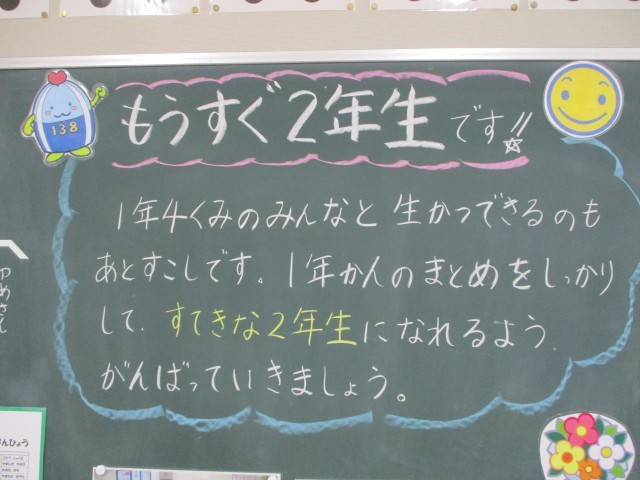 もうすぐ2年生です!!
138
1年4くみのみんなと生かつできるのも
あとすこしです。1年かんのまとめをしっかり
して、すてきな2年生になれるよう、
がんばっていきましょう。
んひょう